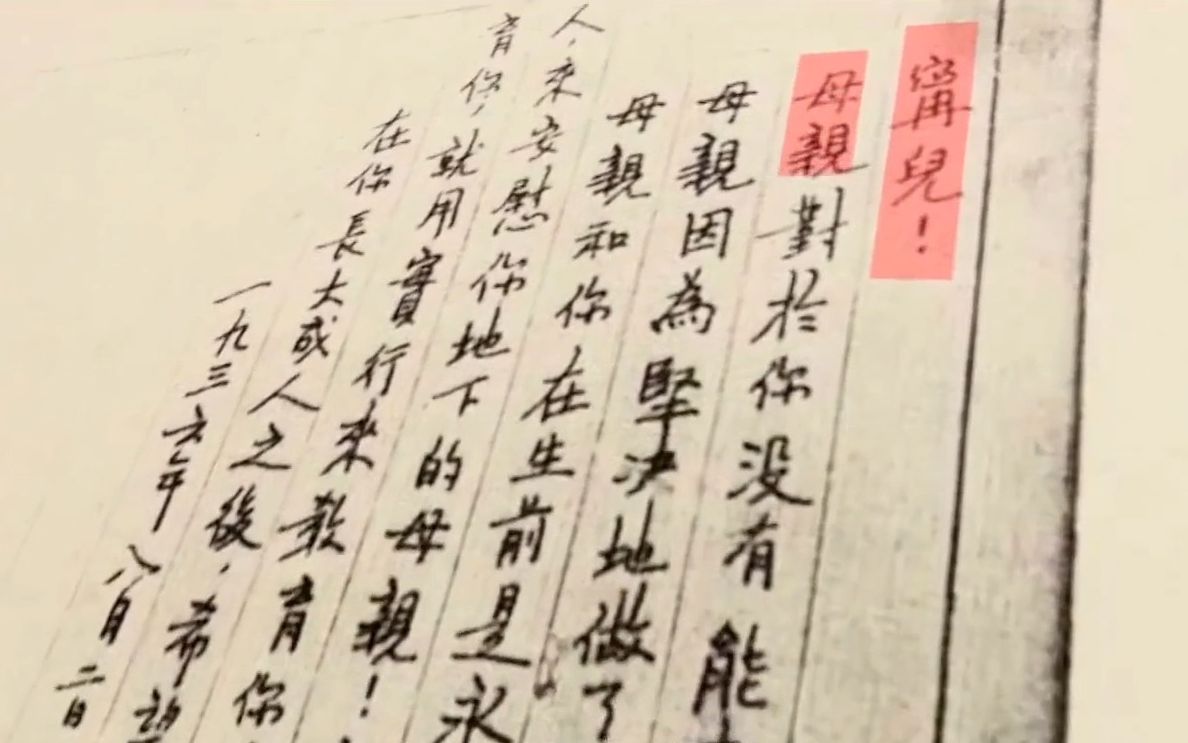 甯兒！
母親對於你没有能
母親因為堅决地做了
母親和你在生前是永
人，來安慰你地下的母親！
育你，就用實行來教育你
在你長大成人之後，希望
一九三六年八月二日